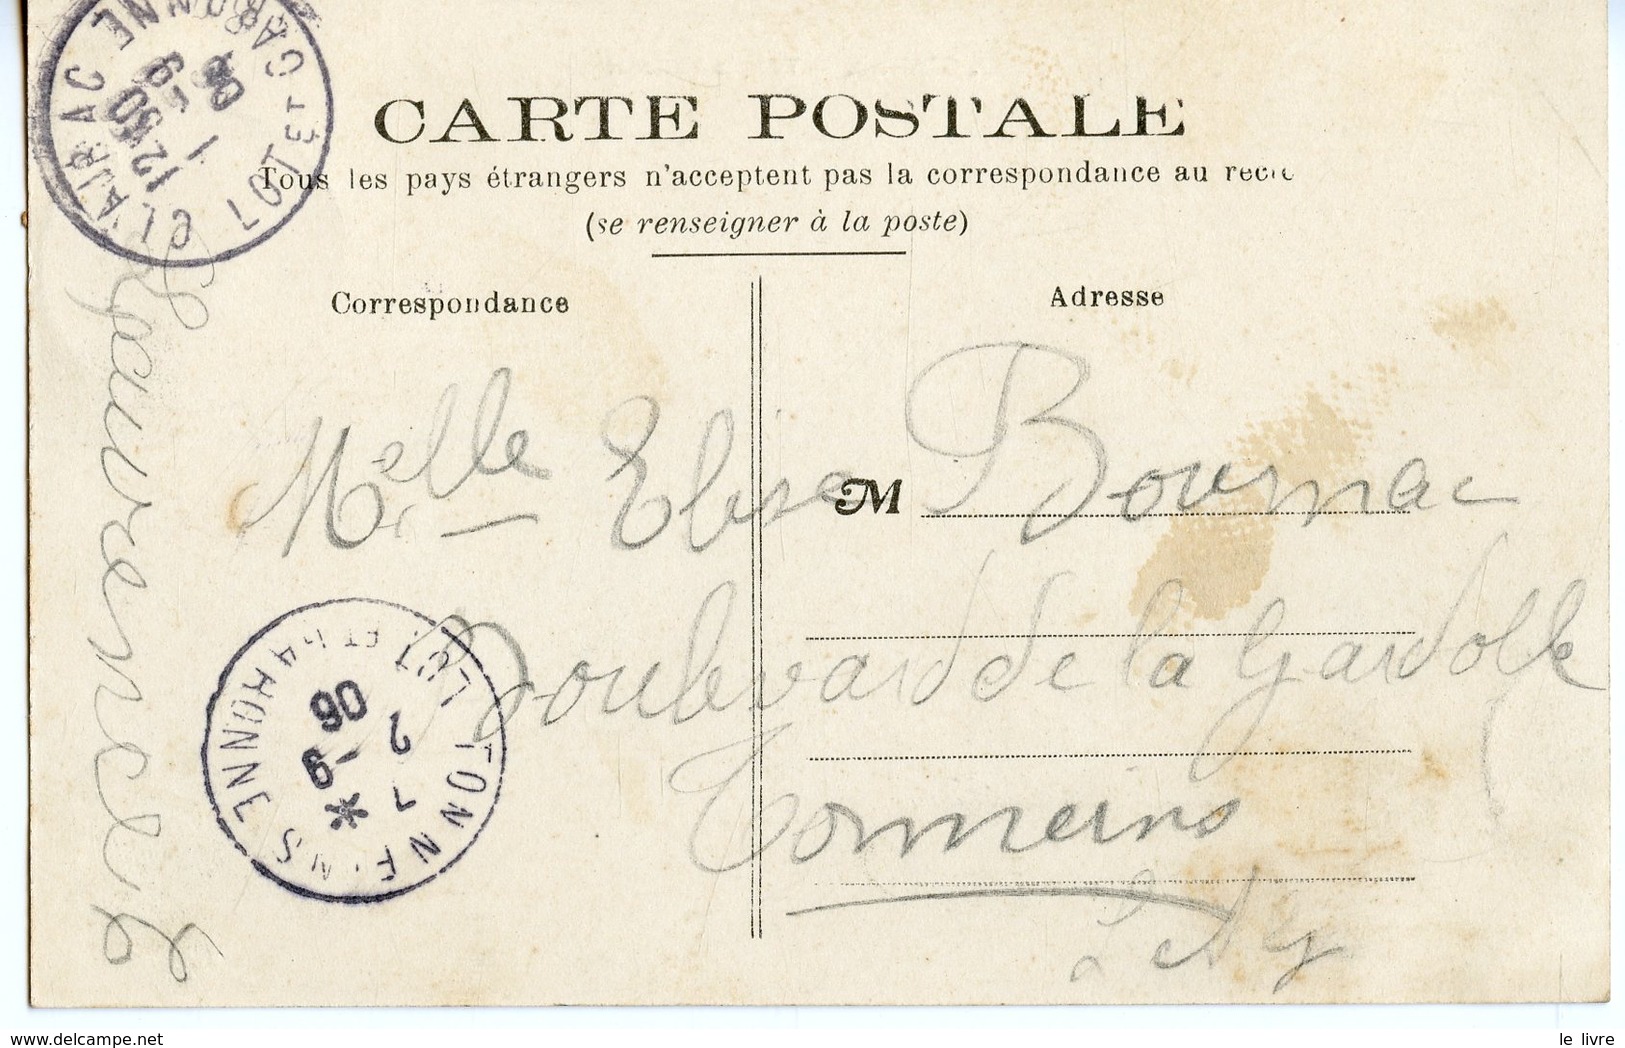 CLAIRAC
LOT ET GARONNE
12 30
1 - 9
06
CARTE POSTALE
Tous les pays étrangers n'acceptent pas la correspondance au recto
(se renseigner à la poste)
Correspondance
Adresse
Melle Elise M Bournac
Boulevard de la Gardolle
Tonneins
L et G
TONNEINS
LOT ET GARONNE
7
2 - 9
06
www.delcampe.net
le livre